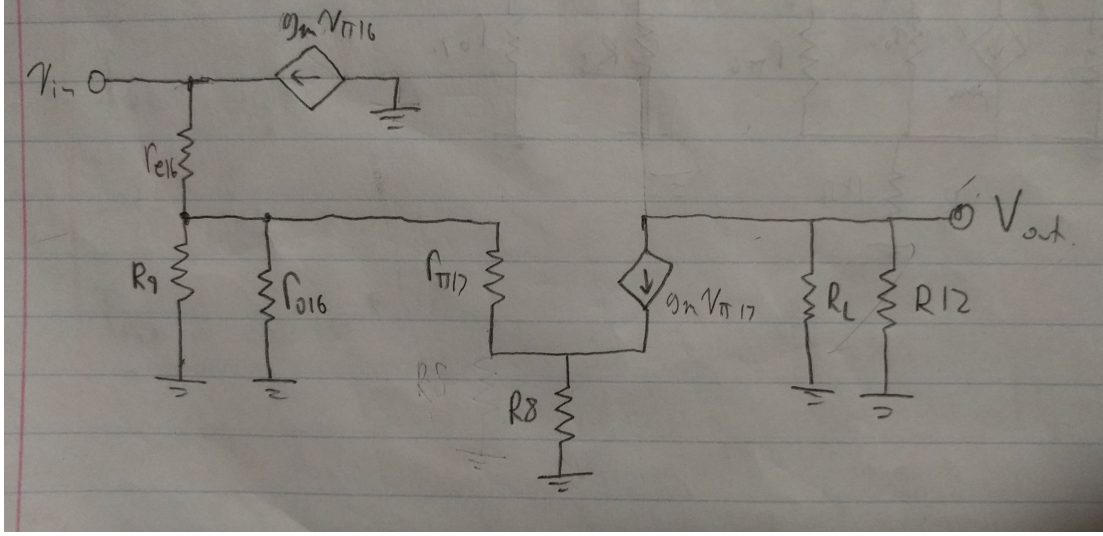 gmVπ16
Vin
re16
Vout.
R9
ro16
rπ17
gmVπ17
RL
R12
R8